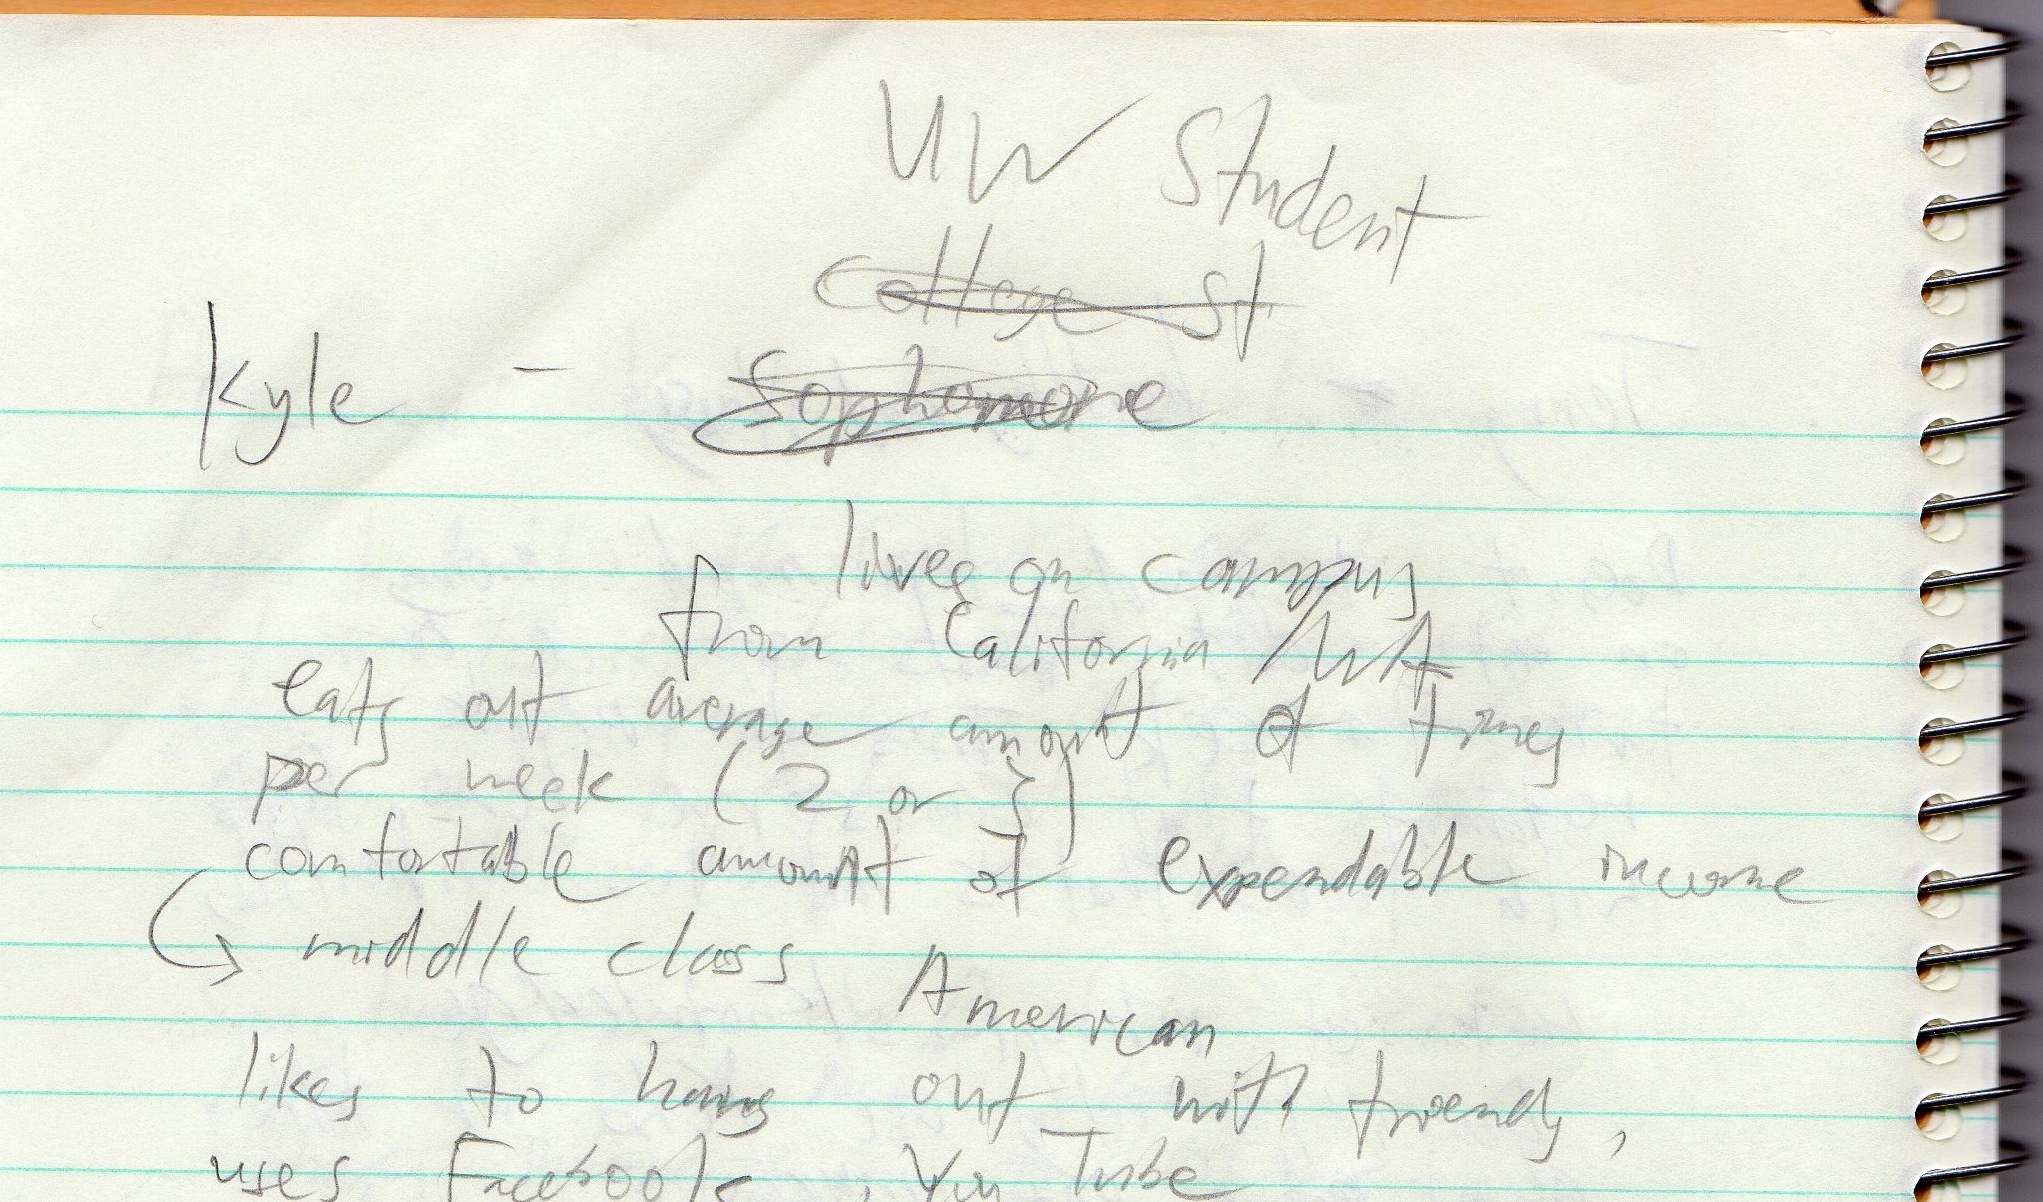 UW Student
College St
Kyle - Sophomore
lives on campus
from California / WA
eats out average amount of times
per week (2 or 3)
comfortable amount of expendable income
↳ middle class American
likes to hang out with friends,
uses Facebook, YouTube